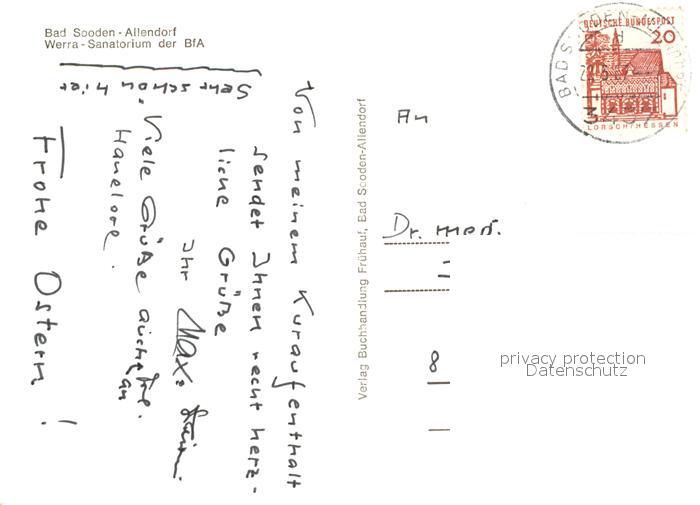 Bad Sooden-Allendorf
Werra-Sanatorium der BfA
Von meinem Kuraufenthalt
sendet Ihnen recht herz-
liche Grüße
Ihr Max
Viele Grüße auch an
Hanelore.
Frohe Ostern!
Sehr schön hier
Verlag Buchhandlung Frühauf, Bad Sooden-Allendorf
DEUTSCHE BUNDESPOST
20
LORSCH/HESSEN
BAD SOODEN-ALLENDORF
An
Dr. med.
8
privacy protection
Datenschutz